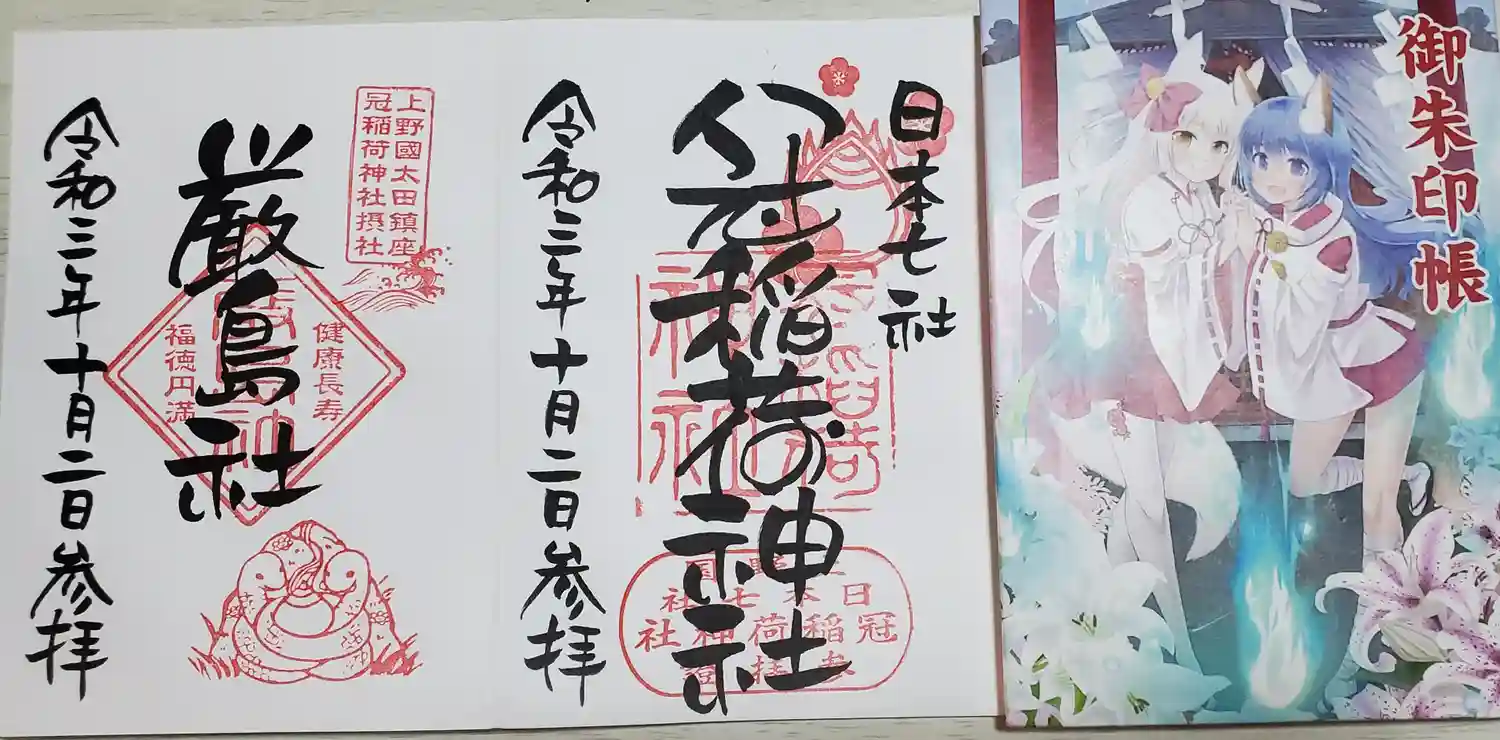 御朱印帳
日本七社
冠稲荷神社
日本七社
冠稲荷神社
令和三年十月二日参拝
上野國太田鎮座
冠稲荷神社摂社
厳島社
健康長寿
福徳円満
令和三年十月二日参拝